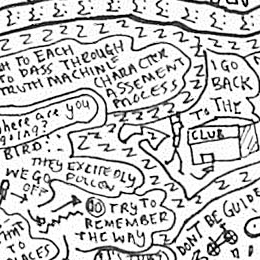 TO EACH
TO PASS THROUGH
TRUTH MACHINE
CHARACTER
ASSEMENT
PROCESS
I GO
BACK
TO THE
CLUB
where are you
going?
BIRD:
THEY EXCITEDLY
FOLLOW
WE GO
OFF
10 TRY TO
REMEMBER
THE WAY
DONT BE GUIDE
TO
PLACES